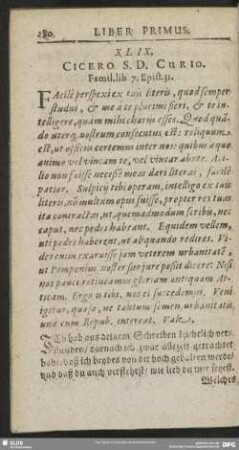 280. LIBER PRIMUS.
XLIX,
CICERO S. D. CURIO.
Famil. lib 7. Epist. 31.
FAcilè perspexi ex tuis literis, quod semper
studui, & me à te plurimi fieri, & te in-
telligere, quam mihi charus esses. Quod quan-
do uterq; nostrum consecutus est: reliquum
est, ut officiis certemus inter nos: quibus aequo
animo vel vincam te, vel vincar abs te. Aci-
lio non fuisse necesse meas dari literas, facilè
patior. Sulpicij tibi operam, intelligo ex tuis
literis, nõ multum opus fuisse, propter res tuas
ita contractas, ut, quemadmodum scribis, nec
caput, nec pedes habeant. Equidem vellem,
uti pedes haberent, ut aliquando redires. Vi-
des enim exaruisse jam veterem urbanitatẽ,
ut Pomponius noster suo jure possit dicere: Nisi
nos pauci retineamus gloriam antiquam At-
ticam. Ergo is tibi, nos ei succedimus. Veni
igitur, quaeso, ne tantum semen urbanitatis
una cum Repub. intereat. Vale.
ICh hab aus deinem Schreiben
standen / darnach ich zwar allezeit getrachtet
habe / daß ich beydes von dir hoch gehalten werde /
und daß du auch verstehest / wie lieb du mir seyest.
Welches